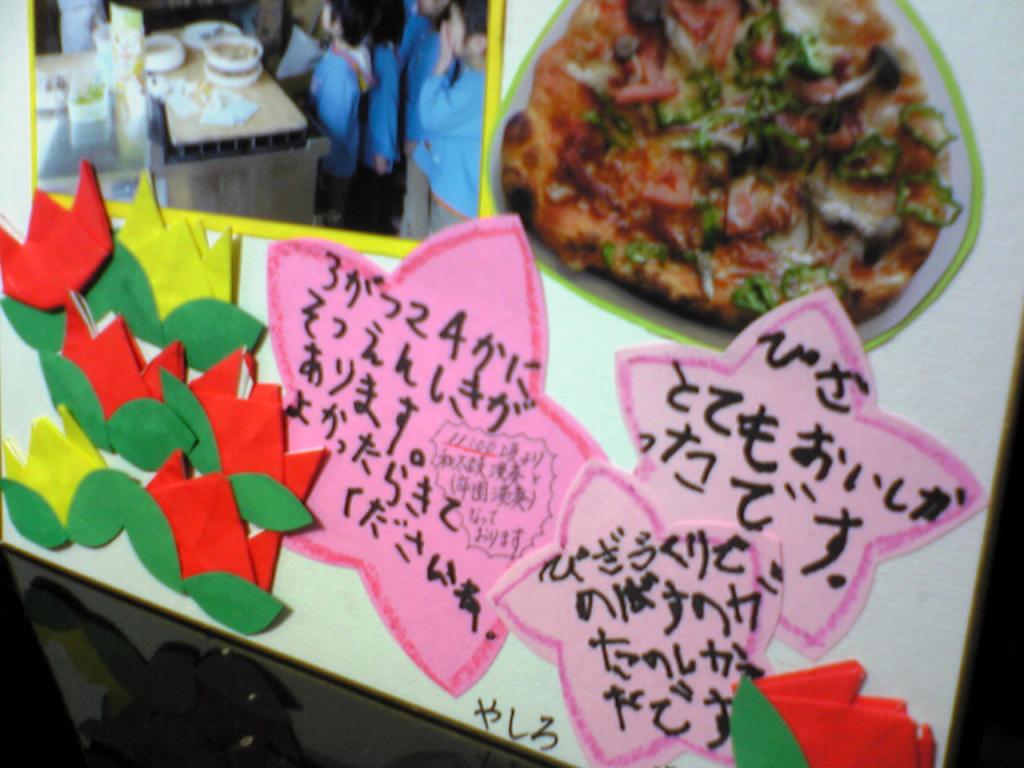 3がつ24かに
そつえんしきが
あります。
よかったらきて
くださいね。
11:00頃より
和太鼓演奏と
(卒園演奏)
なって
おります
ぴざ おいしか
とてもです。
った
ぴざづくりで
のばすのが
たのしかっ
たです
やしろ